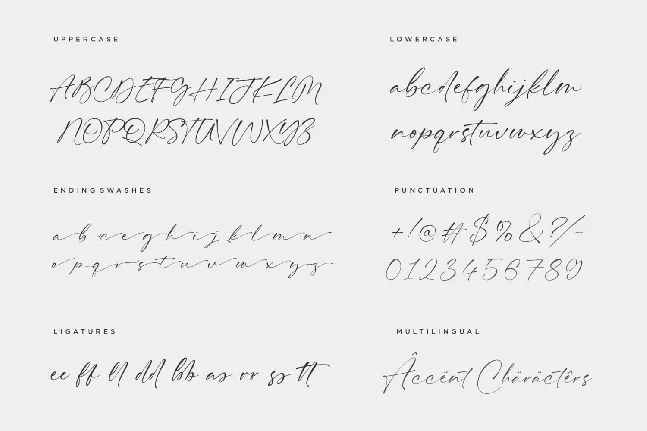 UPPERCASE
ABCDEFGHIJKLM
NOPQRSTUVWXYZ
LOWERCASE
abcdefghijklm
nopqrstuvwxyz
ENDING SWASHES
a b c e g h i j k l m n
o p q r s t u v w x y z
PUNCTUATION
+!@#$%&?/-
0123456789
LIGATURES
ee ff ll dd bb as rr ss tt
MULTILINGUAL
Âccënt Chäräctêrs